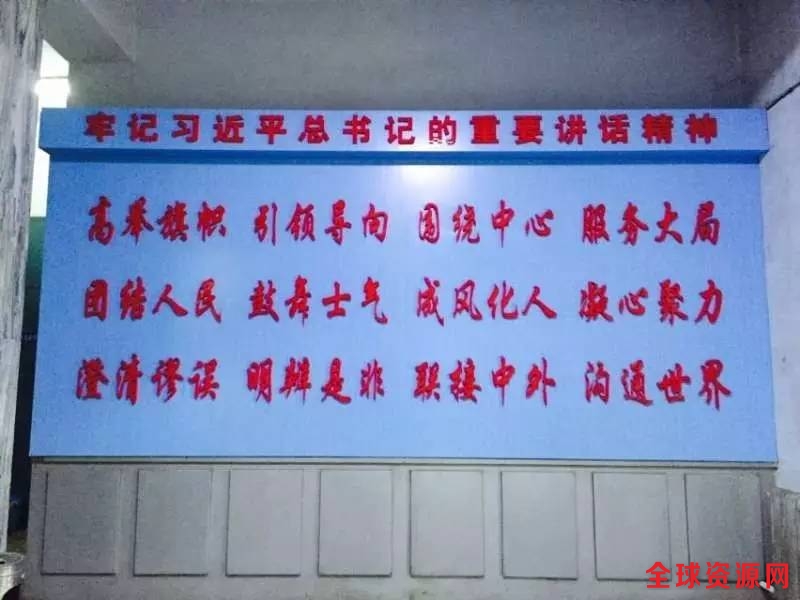 牢记习近平总书记的重要讲话精神
高举旗帜 引领导向 围绕中心 服务大局
团结人民 鼓舞士气 成风化人 凝心聚力
澄清谬误 明辨是非 联接中外 沟通世界
全球资源网